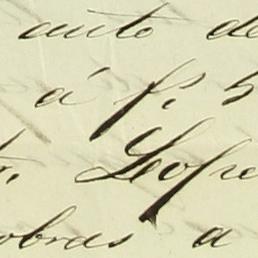 auto de
á f. 5
Lope
obras a